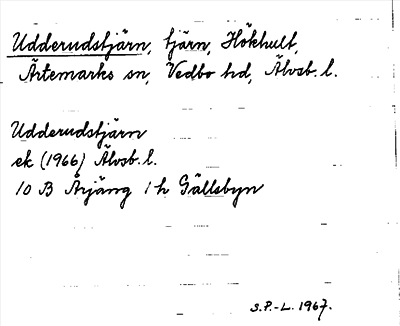 Udderudstjärn, tjärn, Hökhult,
Ärtemarks sn, Vedbo hd, Älvsb. l.
Udderudstjärn
ek (1966) Älvsb. l.
10 B Årjäng 1 h Gällsbyn
S.P.-L. 1967.